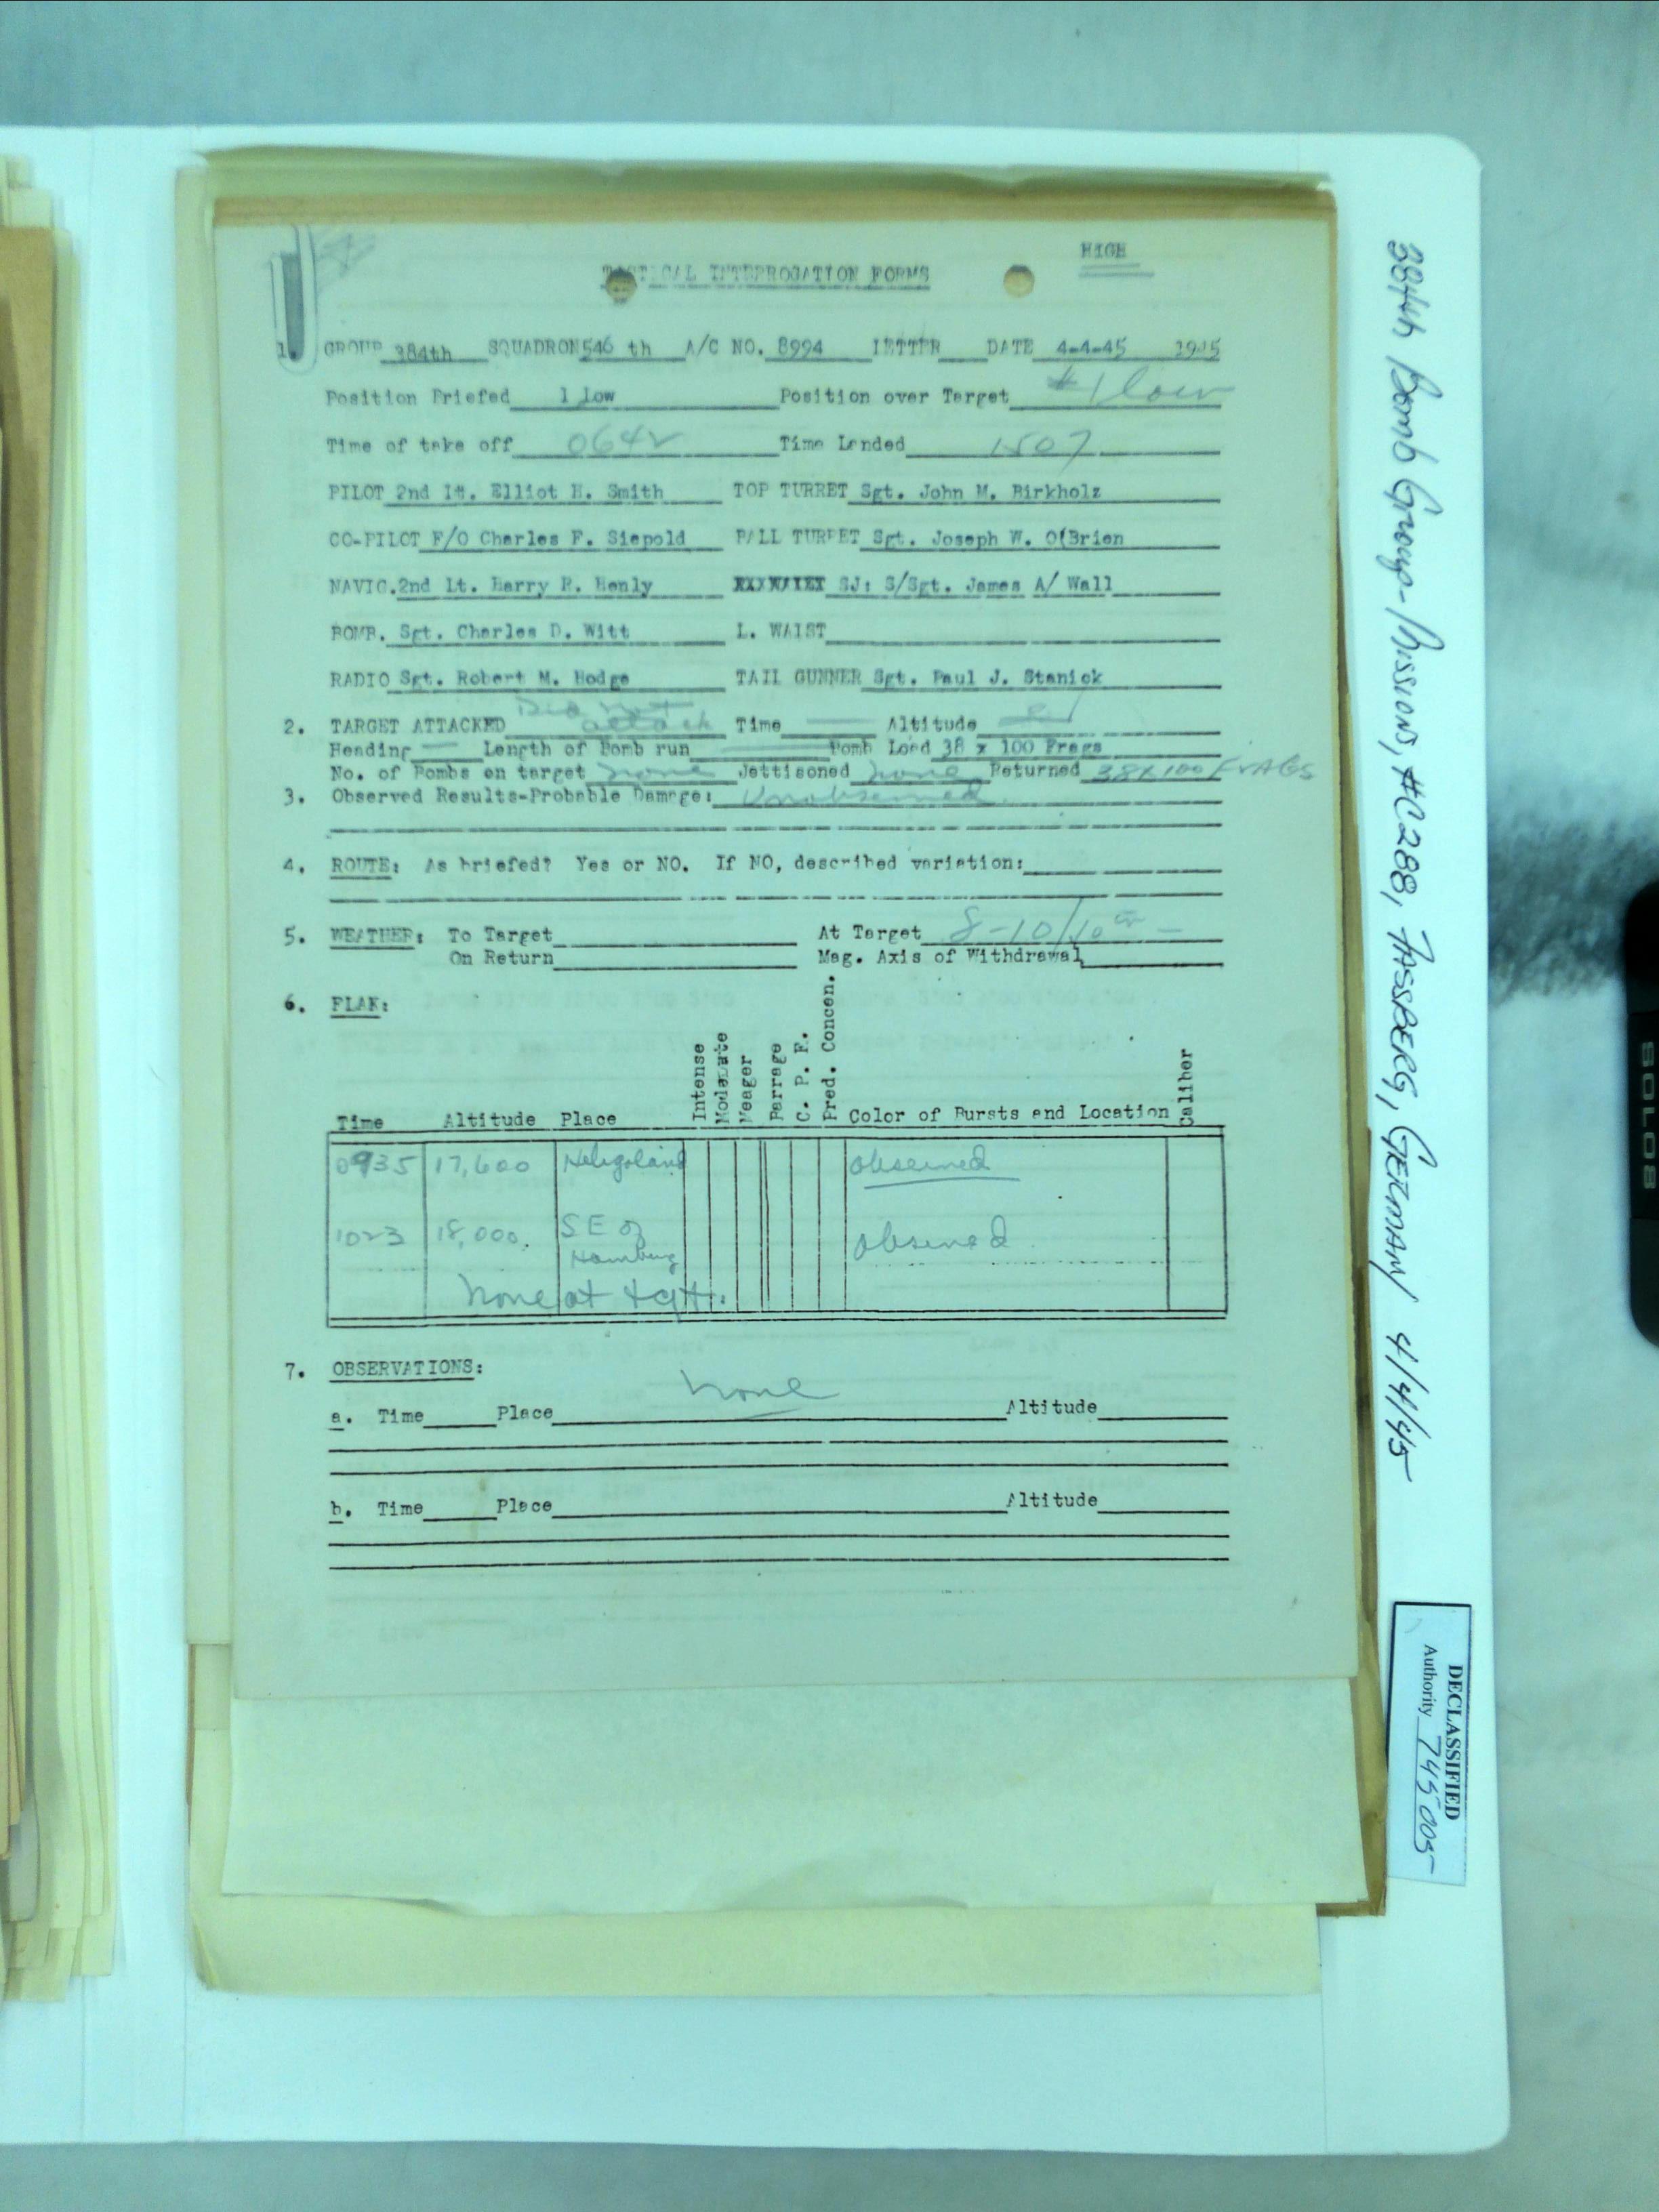 HIGH
TACTICAL INTERROGATION FORMS
1. GROUP 384th SQUADRON 546 th A/C NO. 8994 LETTER DATE 4-4-45 1945
Position Briefed 1 Low Position over Target #1 low
Time of take off 0642 Time Landed 1507
PILOT 2nd Lt. Elliot H. Smith TOP TURRET Sgt. John M. Birkholz
CO-PILOT F/O Charles F. Siepold BALL TURRET Sgt. Joseph W. O(Brien
NAVIG. 2nd Lt. Harry R. Henly SJ: S/Sgt. James A/ Wall
BOMB. Sgt. Charles D. Witt L. WAIST
RADIO Sgt. Robert M. Hodge TAIL GUNNER Sgt. Paul J. Stanick
2. TARGET ATTACKED Did not attack Time Altitude
Heading Length of Bomb run Bomb Load 38 x 100 Frags
No. of Bombs on target none Jettisoned none Returned 38x100 FRAGS
3. Observed Results-Probable Damage: Unobserved
4. ROUTE: As briefed? Yes or NO. If NO, described variation:
5. WEATHER: To Target At Target 8-10/10
On Return Mag. Axis of Withdrawal
6. FLAK:
Time Altitude Place Intense Moderate Meager Barrage C. P. F. Pred. Concen. Color of Bursts and Location Caliber
0935 17,600 Heligoland Observed
1023 18,000. SE of Hamburg Observed
None at tgt.
7. OBSERVATIONS:
none
a. Time Place Altitude
b. Time Place Altitude
384th Bomb Group-Missions, #C288, FASSBERG, GERMANY 4/4/45
DECLASSIFIED
Authority 745005
SOLO8